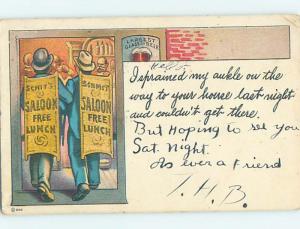 LARGEST
GLASS OF BEER
Hello
I sprained my ankle on the
way to your house last night
and couldn't get there.
But Hoping to see you
Sat. Night.
As ever a friend
T. H. B.
SCHIT'S
SALOON
FREE
LUNCH
SCHMIT'S
SALOON
FREE
LUNCH